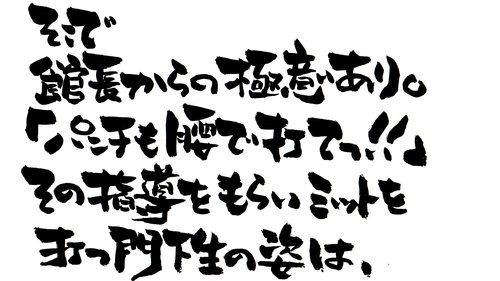 そこで
館長からの極意あり。
「パンチも腰で打てっ!!」
その指導をもらいミットを
打つ門下生の姿は、